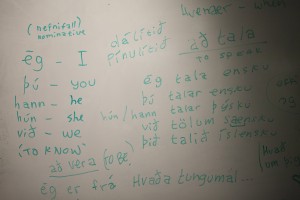 (nefnifall)
nominative
ég - I
þú - you
hann - he
hún - she
við - we
(TO KNOW)
að vera (TO BE)
Ég er frá
dálítið
pínulítið
Hvenær - when
að tala
TO SPEAK
ég tala ensku
þú talar ensku
hún/hann talar þýsku
við tölum
þið talið íslensku
Hvaða tungumál...
(Hvað